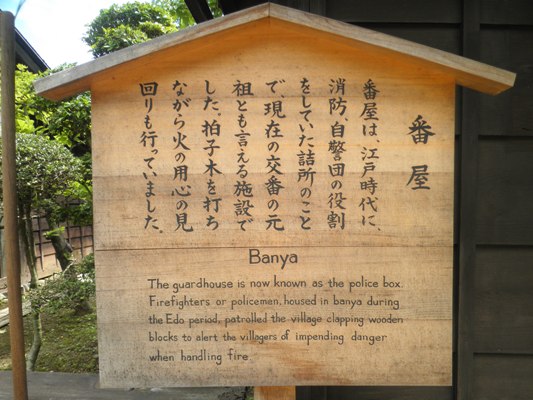 番屋
番屋は、江戸時代に、
消防、自警団の役割
をしていた詰所のこと
で、現在の交番の元
祖とも言える施設で
した。拍子木を打ち
ながら火の用心の見
回りも行っていました。
Banya
The guardhouse is now known as the police box.
Firefighters or policemen, housed in banya during
the Edo period, patrolled the village clapping wooden
blocks to alert the villagers of impending danger
when handling fire.